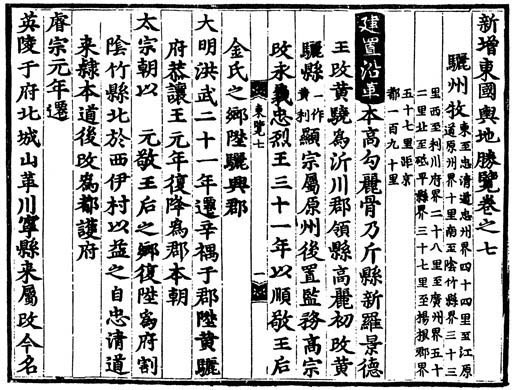 新增東國輿地勝覽卷之七
驪州牧 東至忠清道忠州界四十四里至江原
道原州界十里南至陰竹縣界三十三
里西至利川府界二十八里至廣州界五十
二里北至砥平縣界三十七里至楊根郡界
五十七里距京
都一百九十里
建置沿革 本高勾麗骨乃斤縣新羅景德
王改黃驍爲沂川郡領縣高麗初改黃
驪縣 一作黃利 顯宗屬原州後置監務高宗
改永義忠烈王三十一年以順敬王后
東覽七 一
金氏之鄉陞驪興郡
大明洪武二十一年遷辛禑于郡陞黃驪
府恭讓王元年復降爲郡本朝
太宗朝以 元敬王后之鄉復陞爲府割
陰竹縣北於西伊村以益之自忠清道
來隸本道後改爲都護府
睿宗元年遷
英陵于府北城山革川寧縣來屬改今名